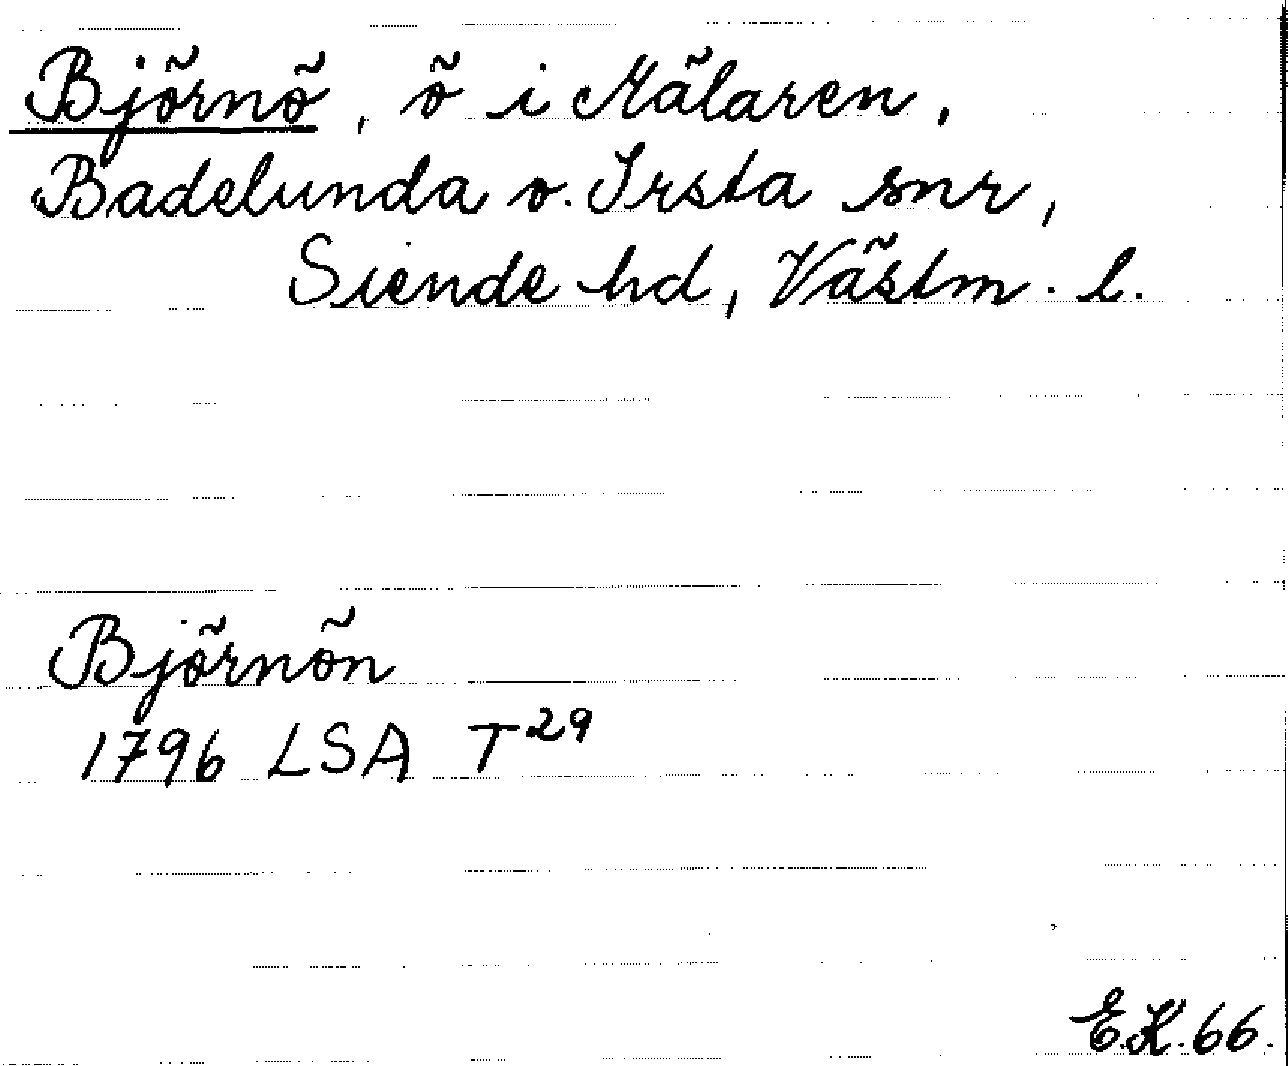 Björnö, ö i Mälaren,
Badelunda o. Irsta snr,
Siende hd, Västm. l.
Björnön
1796 LSA T²⁹
E.K. 66.